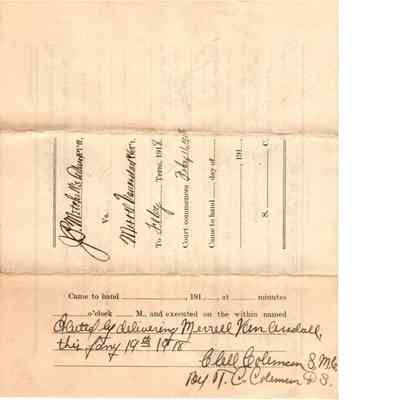 J. B. Mitchell
Vs.
Merrel
To Feby Term, 1918
Court commences Feby
Came to hand ______ day of
______, 191__
S. C.
Came to hand ______, 191__, at ______ minutes
______ o'clock ____ M., and executed on the within named
by delivering Merrell
this Jany 19th 1918
Clell Coleman S. M. C.
By N. C. Coleman D. S.